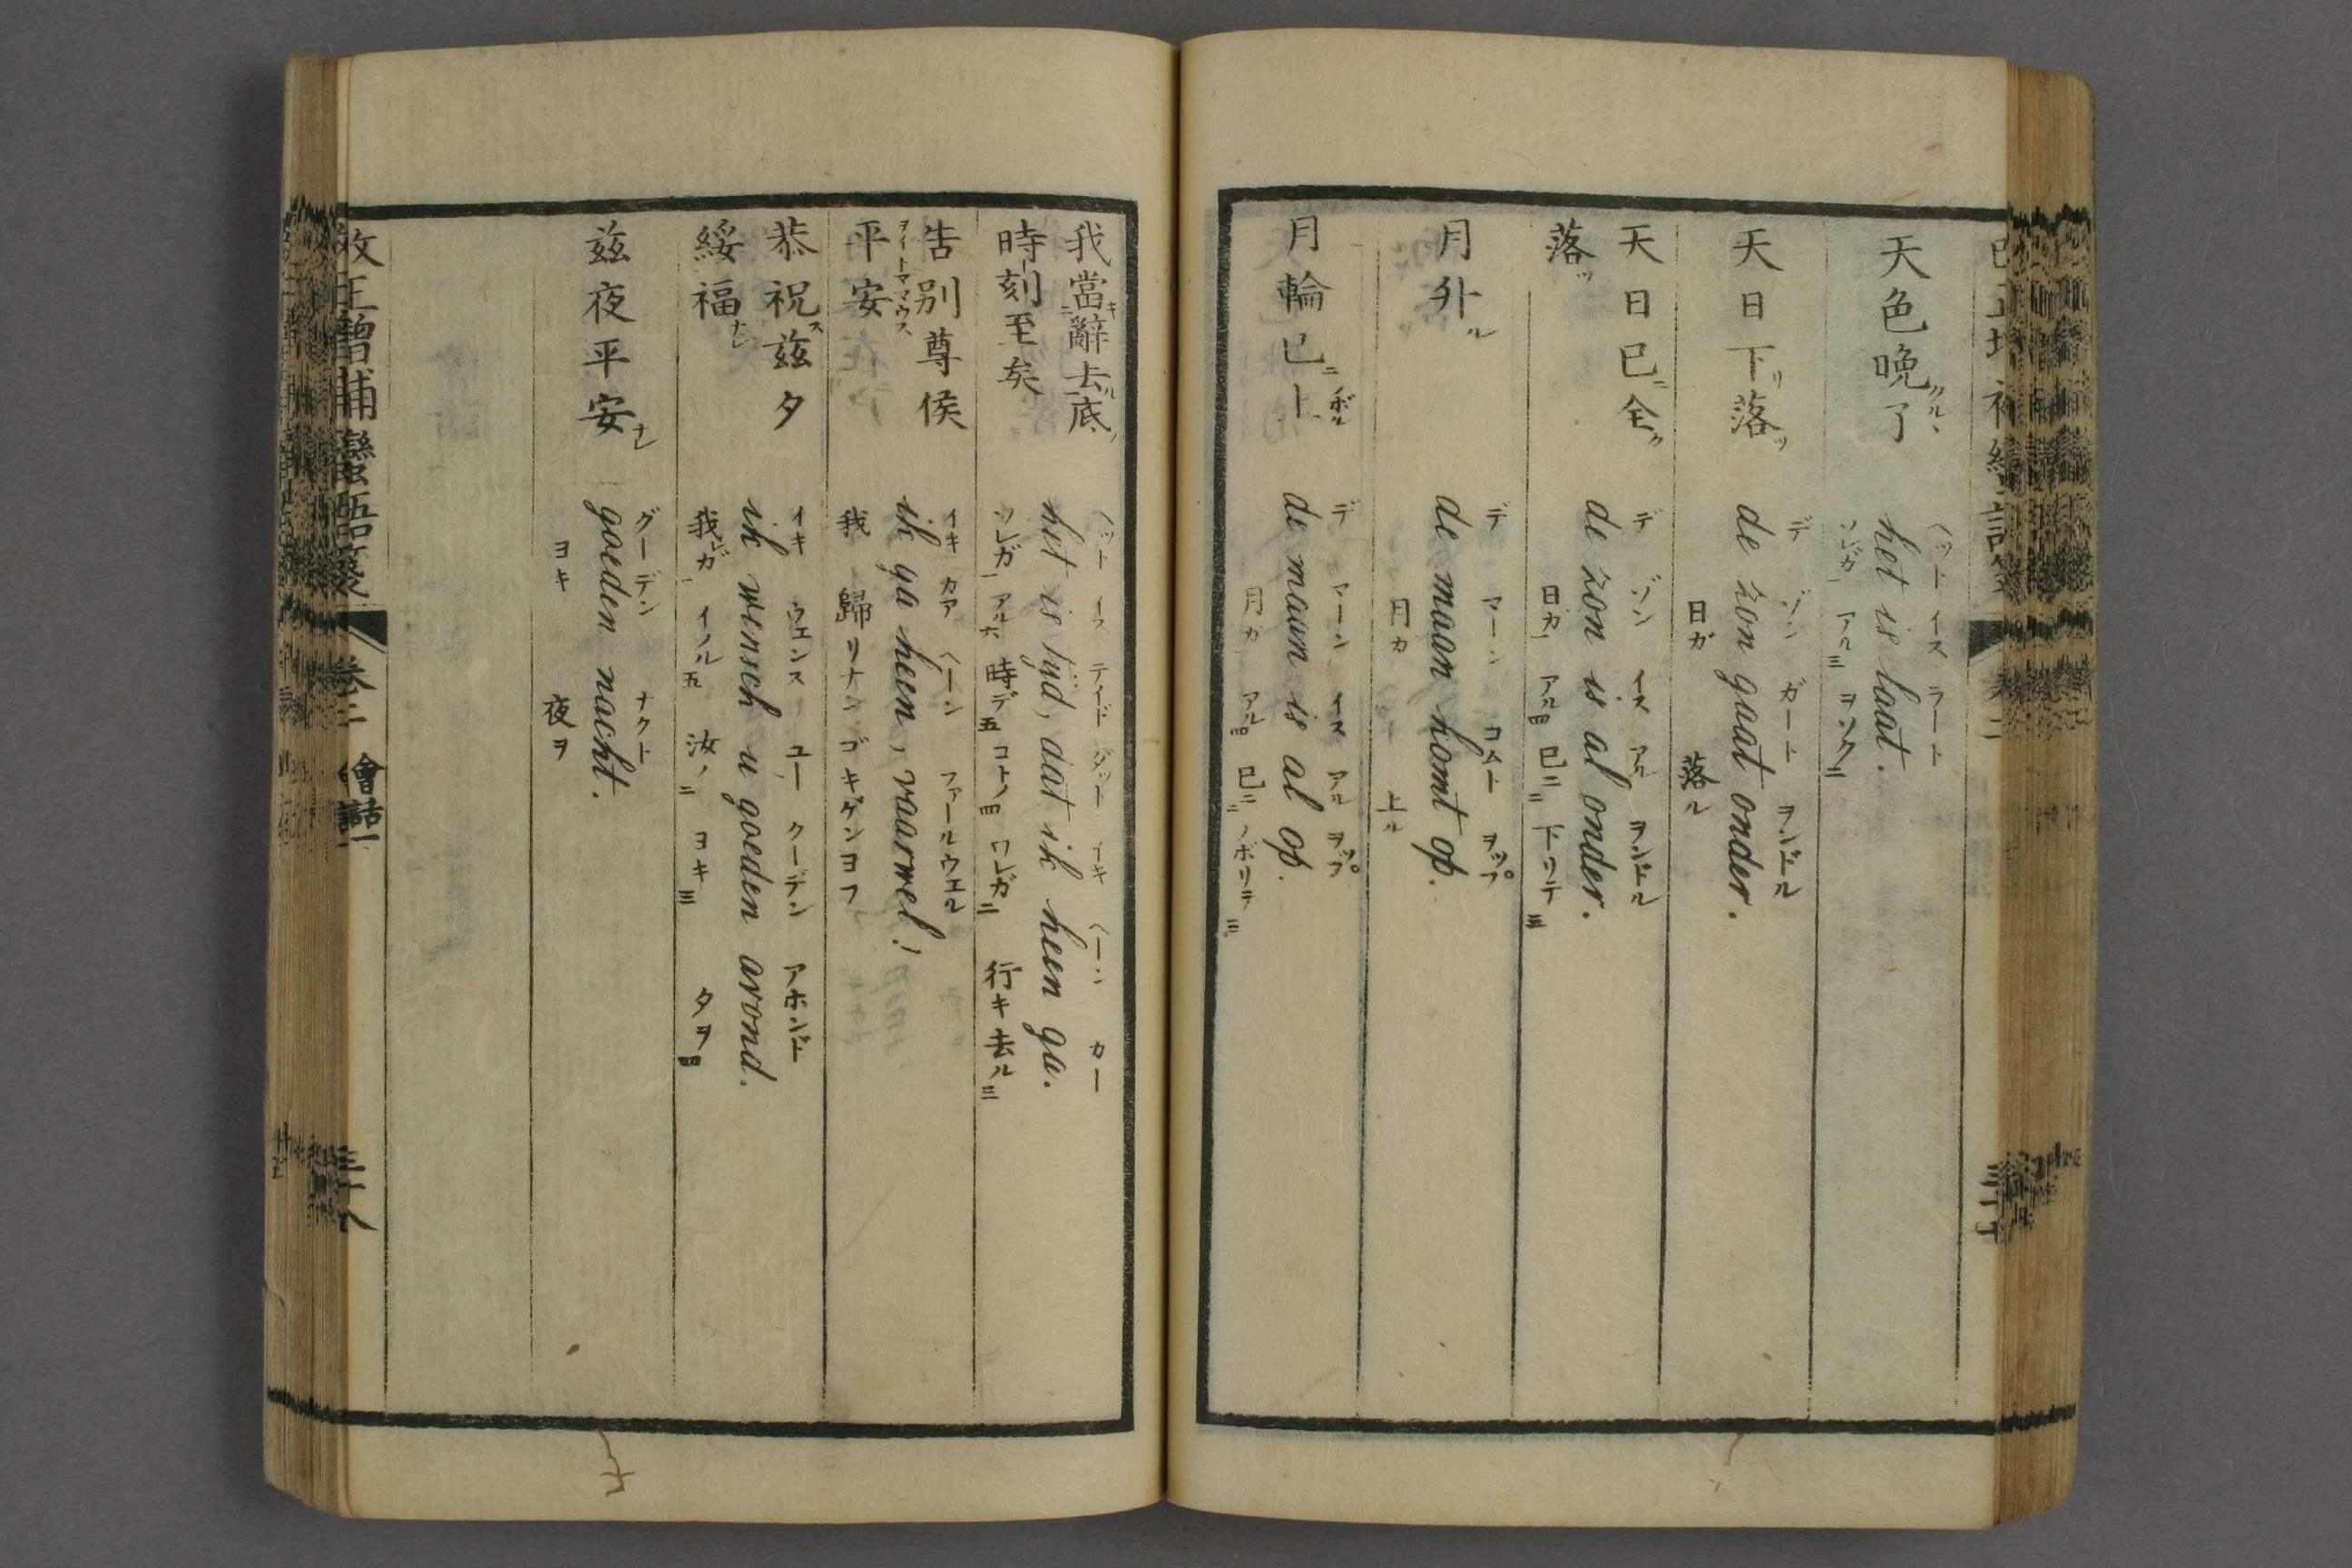 天色晩クルヽ了
ヘット イス ラート
het is laat.
ソレガ一 アル三 ヲソク二
天日下リ落ツ
デ ゾン ガート ヲンドル
de zon gaat onder.
日ガ 落ル
天日已ニ全ク
落ツ
デ ゾン イス アル ヲンドル
de zon is al onder.
日カ一 アル四 已ニ二 下リテ三
月升ル
デ マーン コムト ヲップ
de maan komt op.
月カ 上ル
月輪已ニ上ボル
デ マーン イス アル ヲップ
de maan is al op.
月カ アル四 已ニ二 ノボリテ三
我當ニ辭キ去ル底ノ
時刻至矣
ヘット イス テイド ダット イキ ヘーン カー
het is tyd, dat ik heen ga.
ソレガ一 アル六 時デ五 コトノ四 ワレガ二 行キ去ル三
告別尊侯
ヲイトママウス
平安
イキ カア ヘーン ファールウエル
ik ga heen, vaarwel!
我 歸リナン ゴキゲンヨフ
恭祝ス茲夕
綏福ナレ
イキ ウエンス ユー クーデン アホンド
ik wensch u goeden avond.
我レガ一 イノル五 汝ノ二 ヨキ三 夕ヲ四
茲夜平安ナレ
グーデン ナクト
goeden nacht.
ヨキ 夜ヲ
改正増補蠻語箋 卷二 會話一 三十八